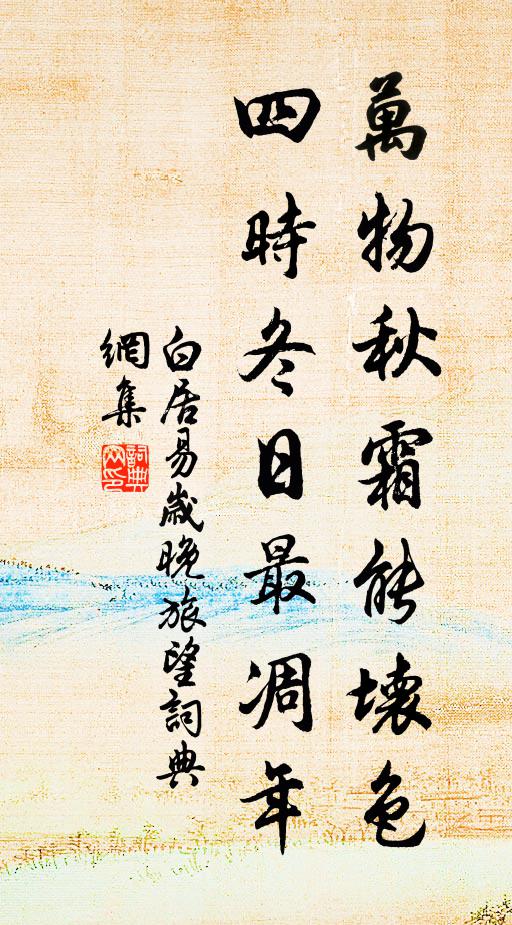 萬物秋霜能壞色
四時冬日最凋年
白居易歲晚旅望詞典
網集
詞典
网印